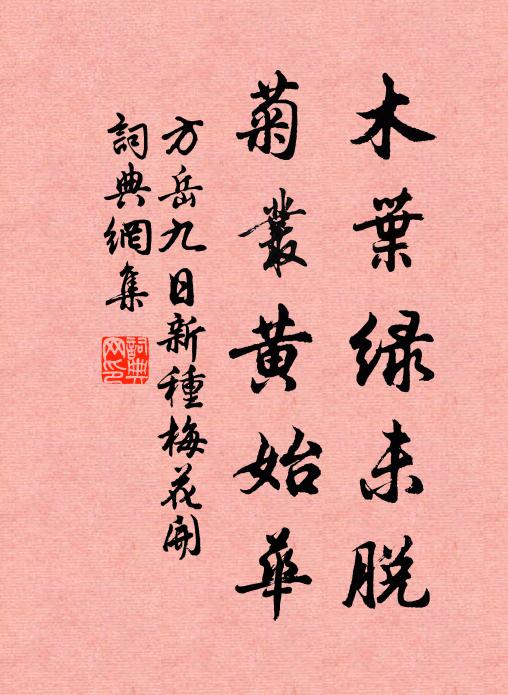 木葉綠未脫
菊叢黃始華
方岳九日新種梅花開
詞典網集
詞典网印